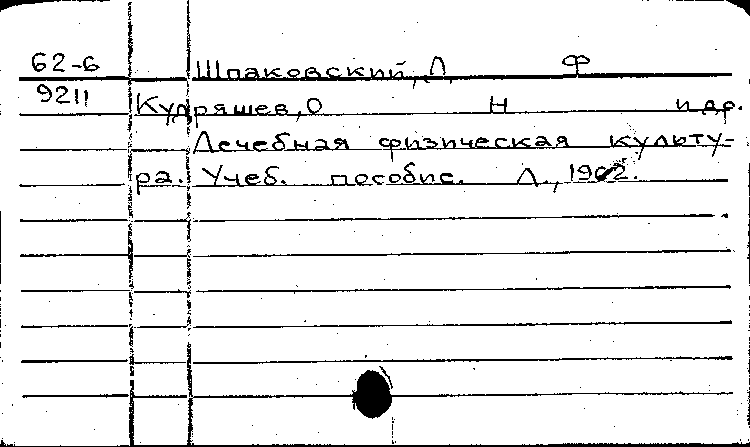 62-6 Шпаковский, Л Ф
9211 Кудряшев, О Н и др.
Лечебная физическая культу-
ра. Учеб. пособие. Л., 1962.